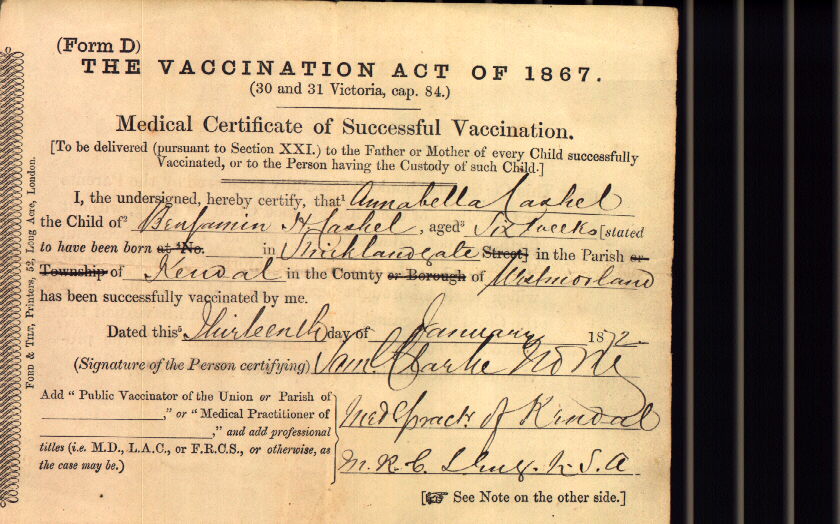 (Form D)
THE VACCINATION ACT OF 1867.
(30 and 31 Victoria, cap. 84.)
Medical Certificate of Successful Vaccination.
[To be delivered (pursuant to Section XXI.) to the Father or Mother of every Child successfully
Vaccinated, or to the Person having the Custody of such Child.]
I, the undersigned, hereby certify, that¹ Annabella Cashel
the Child of² Benjamin H Cashel, aged³ Six weeks [stated
to have been born at ⁴No. in Stricklandgate Street] in the Parish or
Township of Kendal in the County or Borough of Westmorland
has been successfully vaccinated by me.
Dated this⁵ Thirteenth day of January 1872.
(Signature of the Person certifying) Saml Clarke Noble
Add "Public Vaccinator of the Union or Parish of
," or "Medical Practitioner of
," and add professional
titles (i.e. M.D., L.A.C., or F.R.C.S., or otherwise, as
the case may be.)
Med Practr of Kendal
M.R.C. L.S.A
[☞ See Note on the other side.]
FORD & TILT, Printers, 52, Long Acre, London.